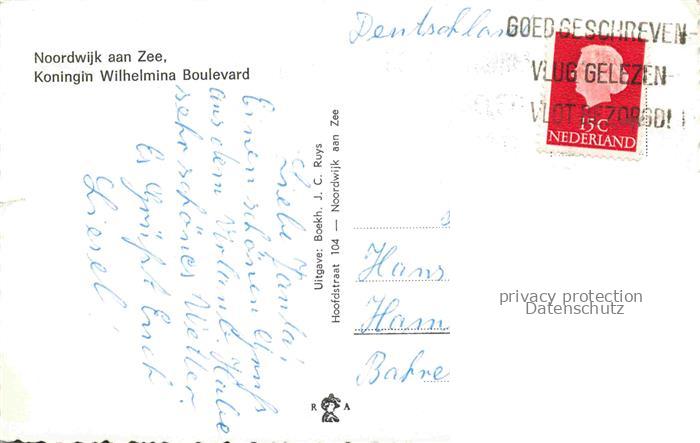 Noordwijk aan Zee,
Koningin Wilhelmina Boulevard
Deutschland
GOED GESCHREVEN
VLUG GELEZEN
VLOT BEZORGD!
15C
NEDERLAND
Uitgave: Boekh. J. C. Ruys
Hoofdstraat 104 — Noordwijk aan Zee
Liebe
Einen schönen Gruß
aus dem Urlaub. Habe
sehr schönes Wetter.
Es Grüßt Euch
Liesel!
Hans
Ham
Bahre
privacy protection
Datenschutz
R A